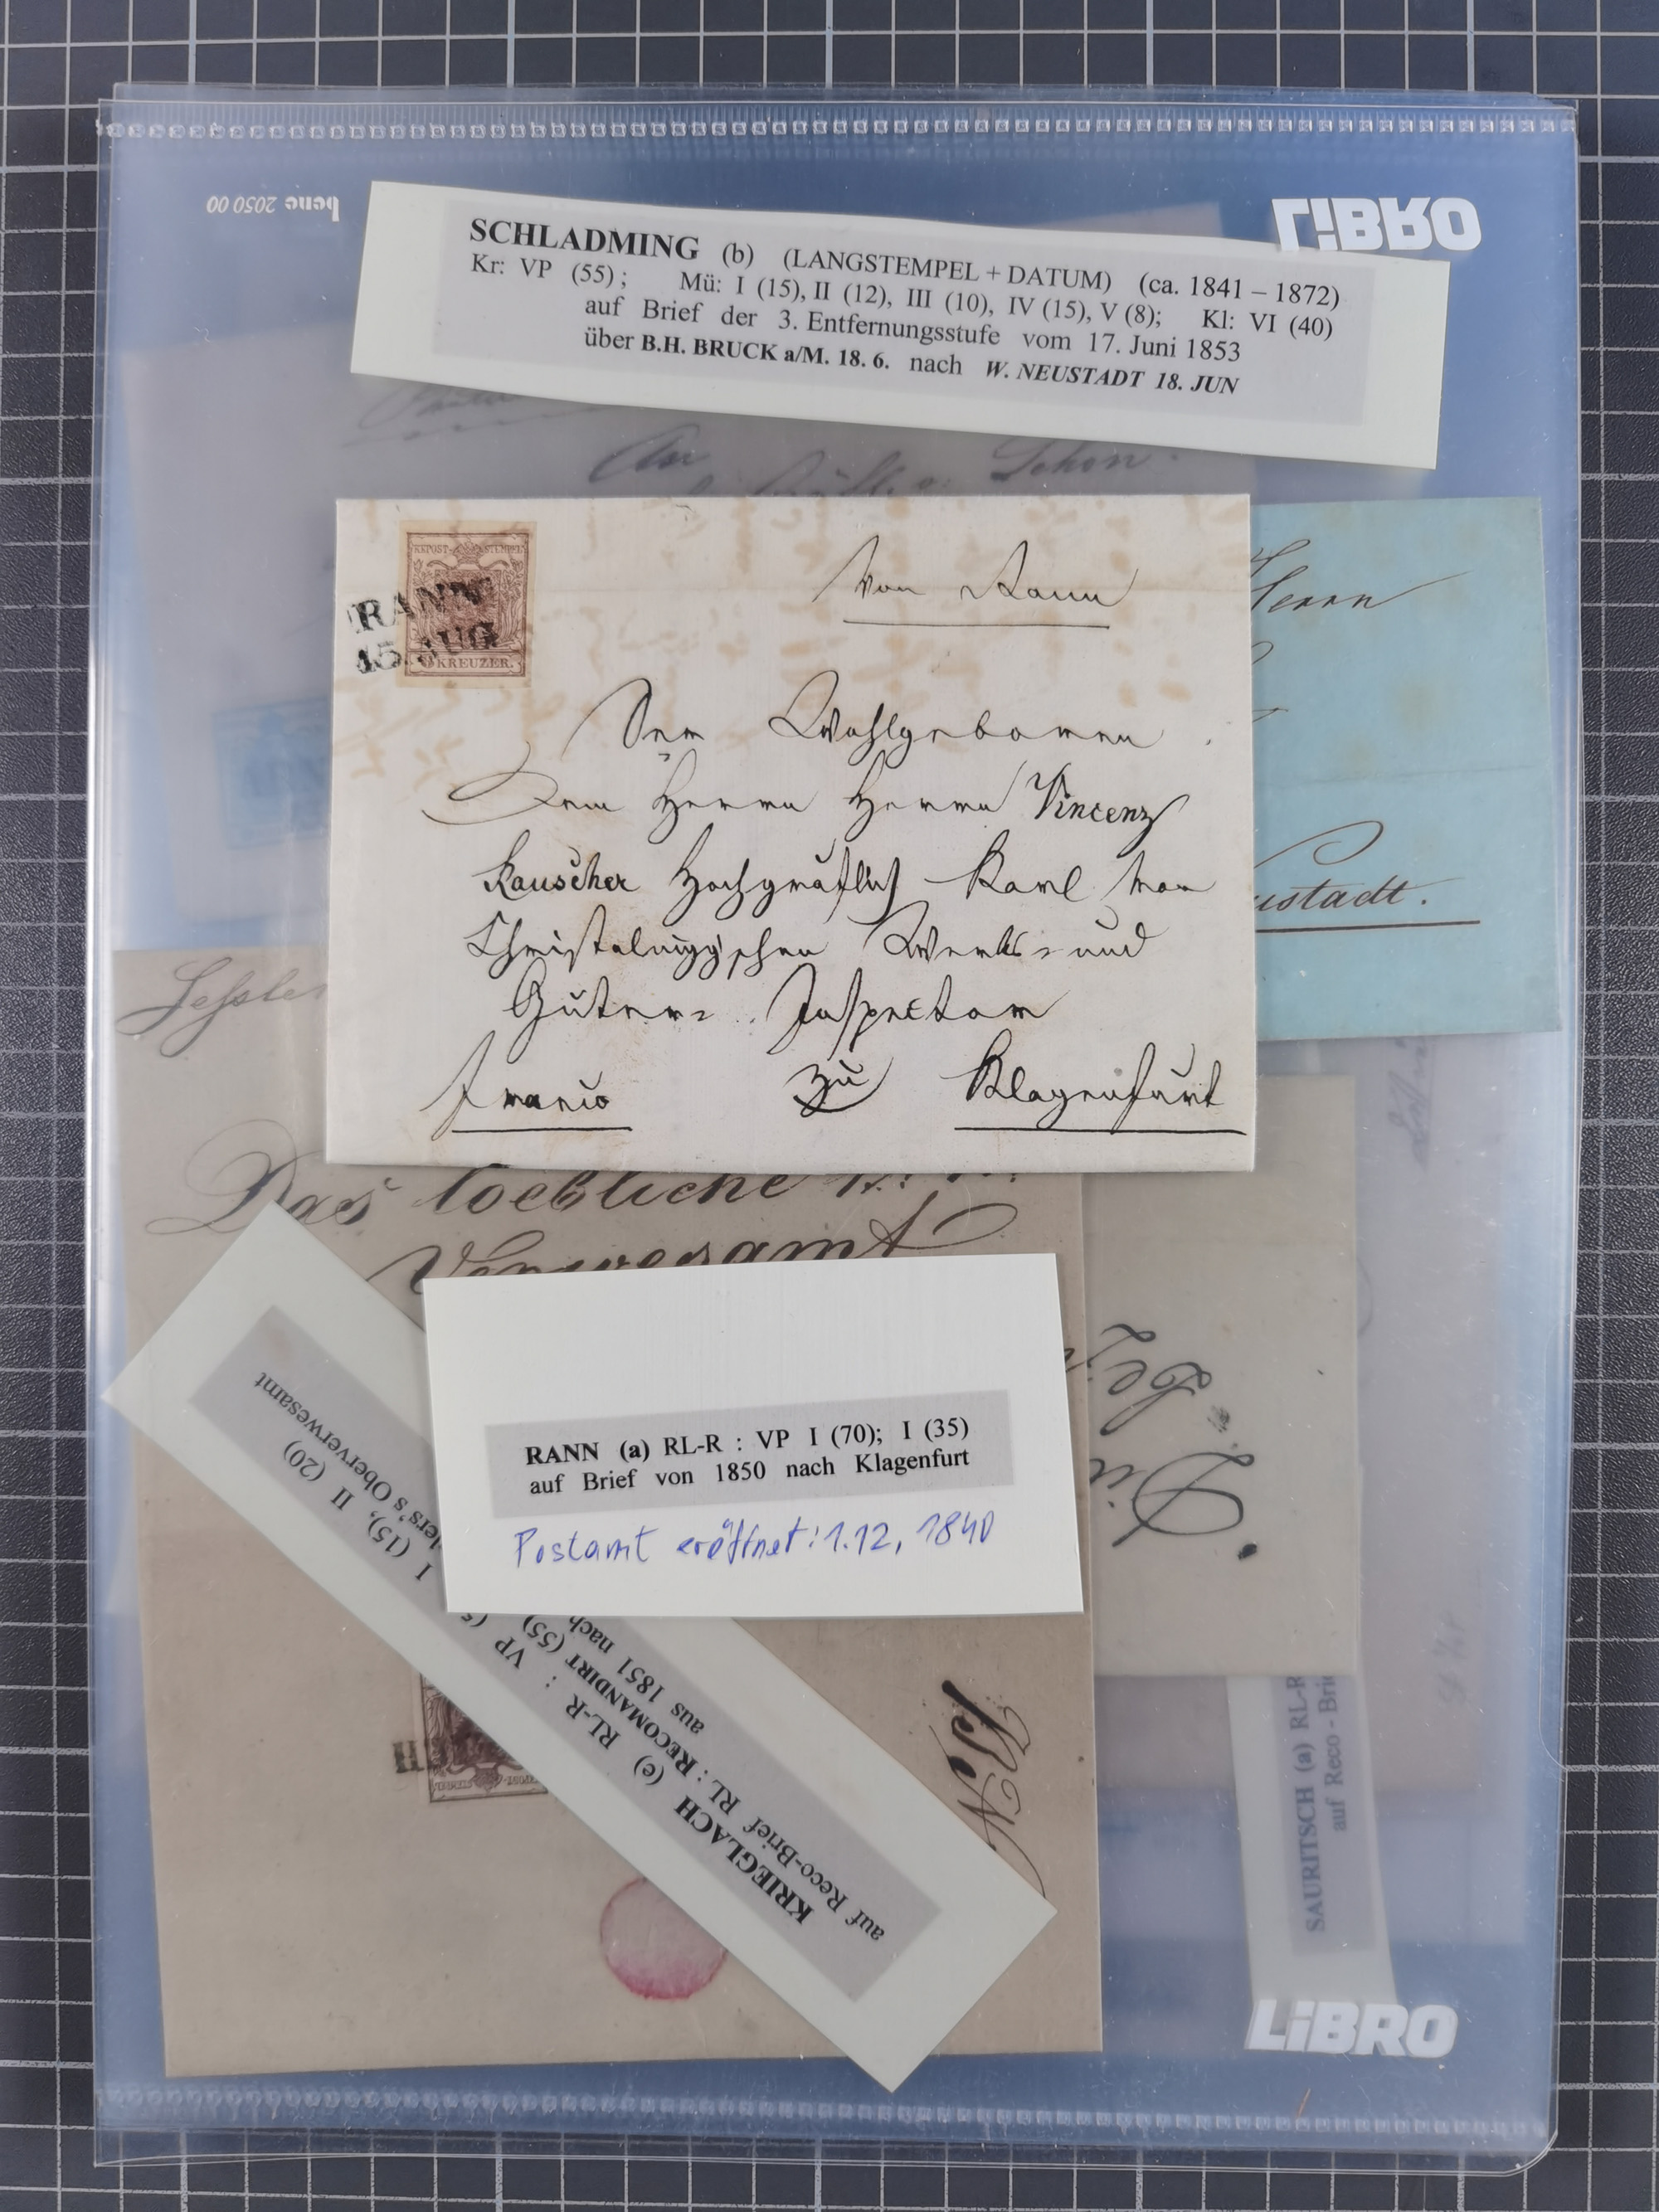 bene 2050 00
LiBRO
SCHLADMING (b) (LANGSTEMPEL + DATUM) (ca. 1841 – 1872)
Kr: VP (55); Mü: I (15), II (12), III (10), IV (15), V (8); Kl: VI (40)
auf Brief der 3. Entfernungsstufe vom 17. Juni 1853
über B.H. BRUCK a/M. 18. 6. nach W. NEUSTADT 18. JUN
An
Schon
KREUZER.
RANN
15. AUG
Von Rann
Dem Wohlgeboren
Dem Herrn Herrn Vincenz
Rauscher Hochgräflich Karl von
Christalnigg'schen Werks- und
Güter- Inspector
Franco zu Klagenfurt
Herrn
ustadt.
Das loebliche K. K.
Verwesamt
RANN (a) RL-R : VP I (70); I (35)
auf Brief von 1850 nach Klagenfurt
Postamt eröffnet: 1.12, 1840
KRIEGLACH (e) RL-R : VP I (15), II (20)
auf Reco-Brief RL: RECOMANDIRT (55)
aus 1851 nach Oberverwesamt
SAURITSCH (a) RL-R
auf Reco - Brie
LiBRO